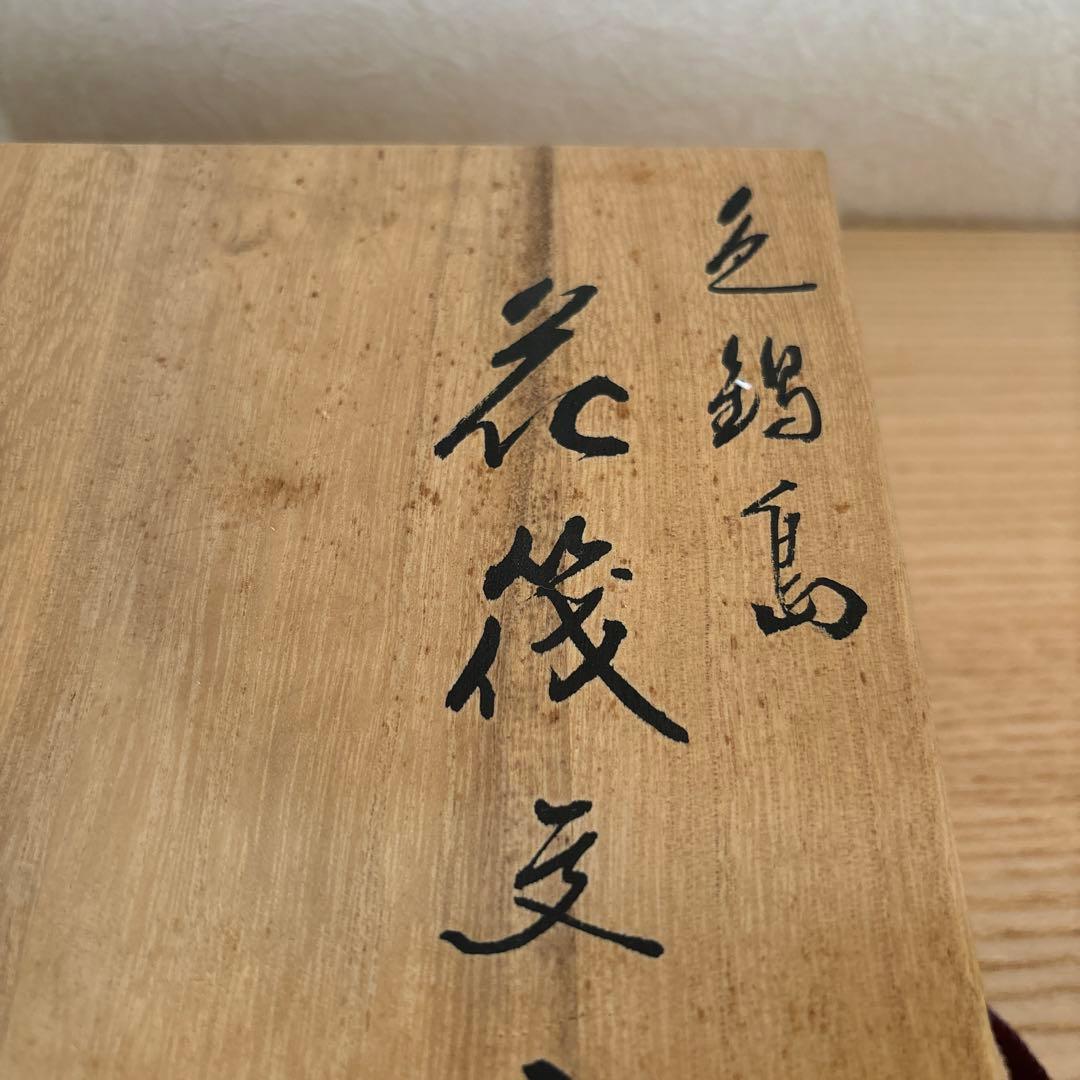 色鍋島
花筏文